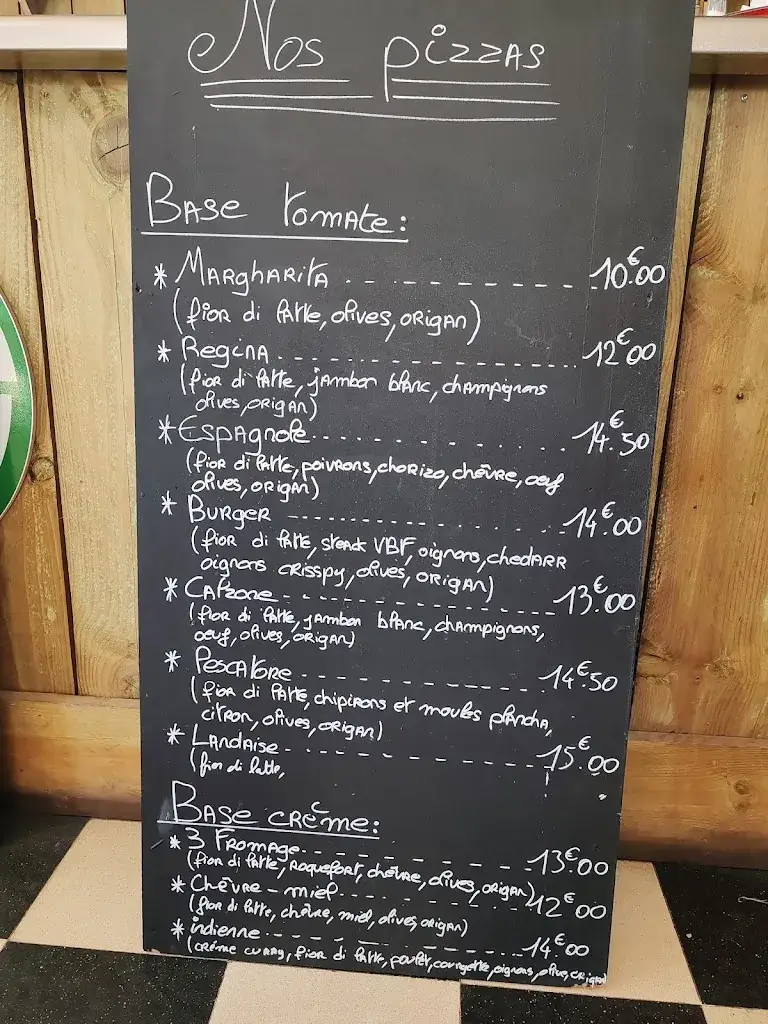 Nos pizzas
Base tomate:
* Margharita 10€00
(fior di latte, olives, origan)
* Regina 12€00
(fior di latte, jambon blanc, champignons
olives, origan)
* Espagnole 14€50
(fior di latte, poivrons, chorizo, chèvre, oeuf
olives, origan)
* Burger 14€00
(fior di latte, steack VBF, oignons, chedarr
oignons crisspy, olives, origan)
* Calzone 13€00
(fior di latte, jambon blanc, champignons,
oeuf, olives, origan)
* Pescatore 14€50
(fior di latte, chipirons et moules plancha,
citron, olives, origan)
* Landaise 15€00
(fior di latte,
Base crème:
* 3 Fromage 13€00
(fior di latte, roquefort, chèvre, olives, origan)
* Chèvre - miel 12€00
(fior di latte, chèvre, miel, olives, origan)
* indienne 14€00
(crème curry, fior di latte, poulet, courgette, oignons, olive, origan)